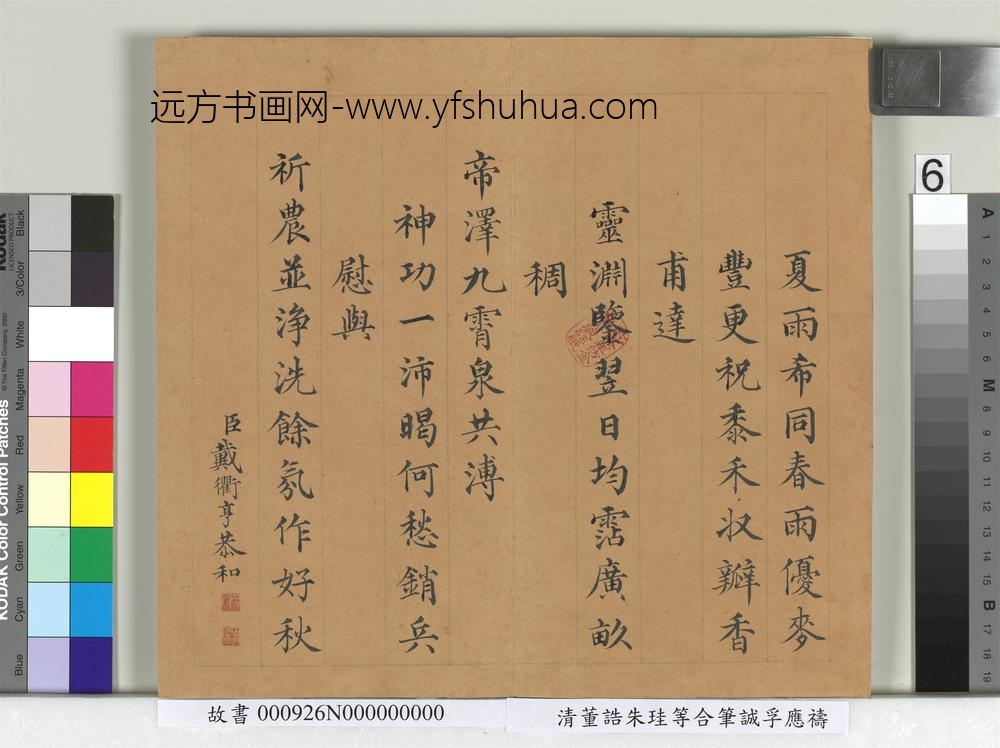 远方书画网-www.yfshuhua.com
夏雨希同春雨優麥
豐更祝黍禾收瓣香
甫達
靈淵鑒翌日均霑廣畝
稠
帝澤九霄泉共溥
神功一沛暍何愁銷兵
慰與
祈農並淨洗餘氛作好秋
臣戴衢亨恭和
故書 000926N000000000
清董誥朱珪等合筆誠孚應禱
6
Kodak
LICENSED PRODUCT
KODAK Color Control Patches
© The Tiffen Company, 2000
Blue
Cyan
Green
Yellow
Red
Magenta
White
3/Color
Black
A
1
2
3
4
5
6
M
8
9
10
11
12
13
14
15
B
17
18
19